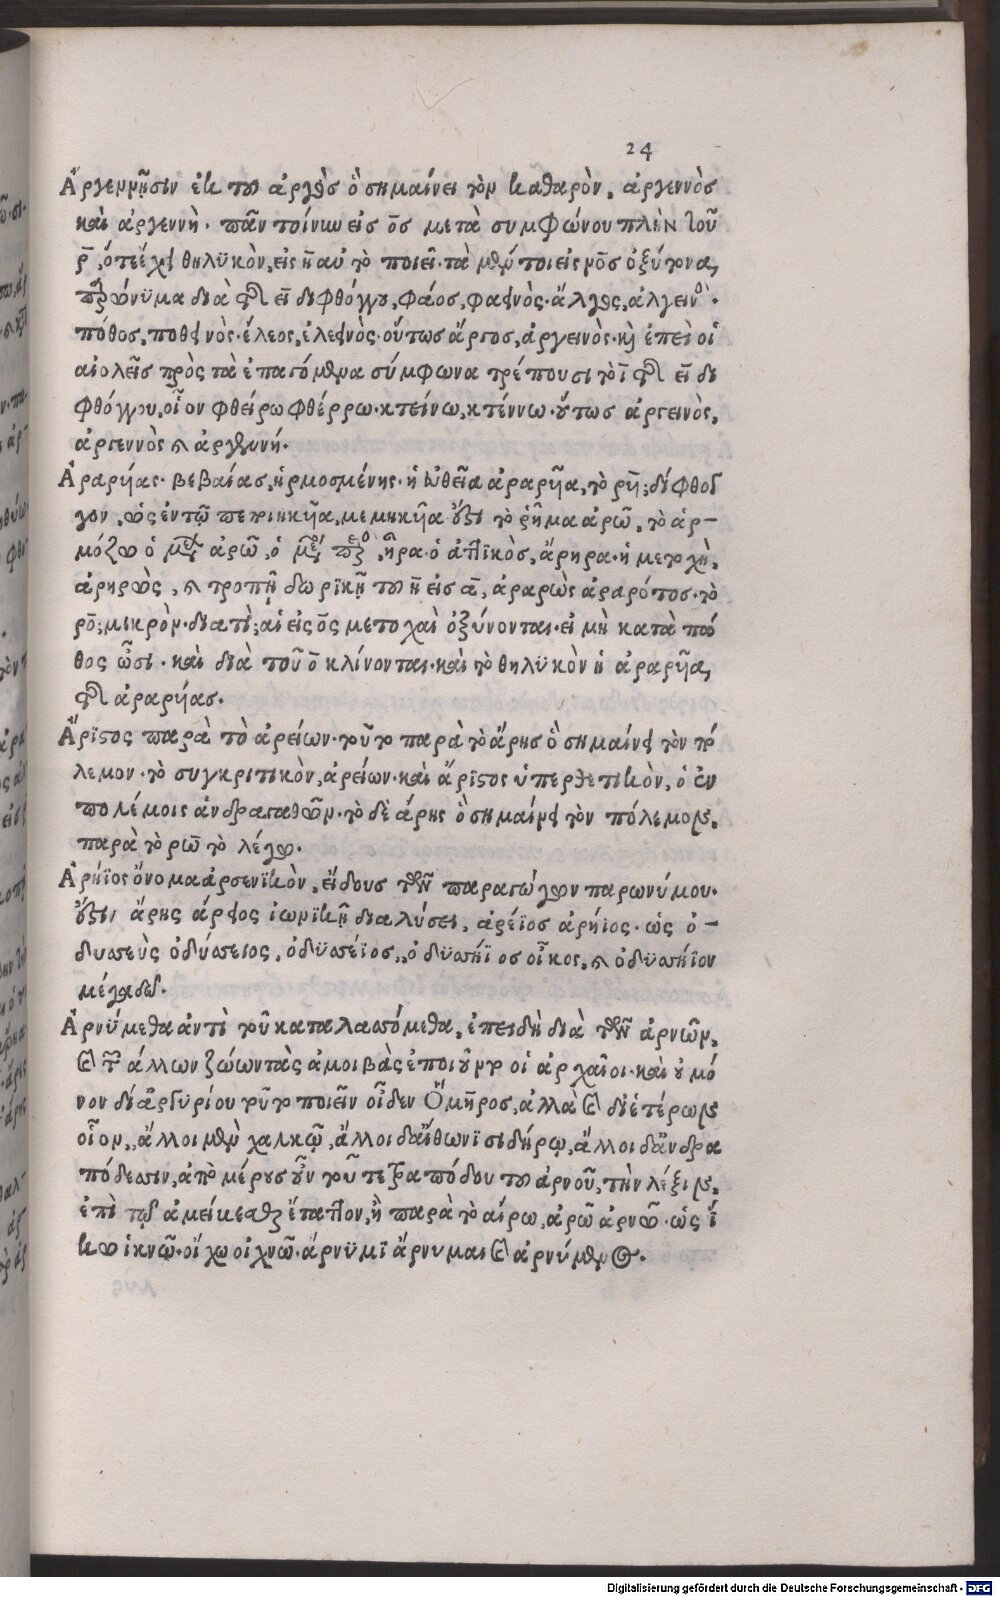 24
Ἀργεννῆσιν ἐκ τοῦ ἀργὸς ὃ σημαίνει τὸν καθαρὸν, ἀργεννὸς
καὶ ἀργεννὴ. πᾶν τοίνυν εἰς ος μετὰ συμφώνου πλὴν τοῦ
ρ, ὅτε ἔχει θηλυκὸν, εἰς η αὐτὸ ποιεῖ. τὰ μέντοι εἰς νος ὀξύτονα,
παρώνυμα διὰ τῆς ει διφθόγγου, φάος, φαεινὸς. ἄλγος, ἀλγεινὸς.
πόθος, ποθεινὸς. ἔλεος, ἐλεεινὸς. οὕτως ἄργος, ἀργεινὸς. καὶ ἐπεὶ οἱ
αἰολεῖς πρὸς τὰ ἐπαγόμενα σύμφωνα τρέπουσι τὸ ι τῆς ει δι
φθόγγου, οἷον φθείρω φθέρρω. κτείνω, κτέννω. οὕτως ἀργεινὸς,
ἀργεννὸς καὶ ἀργεννή.
Ἀραρῆας. βεβαίας, ἡρμοσμένης. ἡ εὐθεῖα ἀραρῆα, τὸ ρη; δίφθογ
γον, ὡς ἐν τῷ
μόζω ὁ ἀρῶ, ὁ ἦρα. ὁ ἀττικὸς, ἄρηρα. ἡ μετοχὴ,
ἀρηρὼς, καὶ τροπῇ δωρικῇ τοῦ η εἰς α, ἀραρὼς ἀραρότος. τὸ
ρο; μικρὸν. διατί; αἱ εἰς ος μετοχαὶ ὀξύνονται. εἰ μὴ κατὰ πά
θος ὦσι. καὶ διὰ τοῦ ο κλίνονται. καὶ τὸ θηλυκὸν ἡ ἀραρῆα,
τῆς ἀραρῆας.
Ἄριστος παρὰ τὸ ἀρείων. τοῦτο παρὰ τὸ ἄρης ὃ σημαίνει τὸν πό
λεμον. τὸ συγκριτικὸν, ἀρείων. καὶ ἄριστος ὑπερθετικὸν, ὁ ἐν
πολέμοις ἀνδραγαθῶν. τὸ δὲ ἄρης ὃ σημαίνει τὸν πόλεμον,
παρὰ τὸ ρῶ τὸ λέγω.
Ἀρήϊος ὄνομα ἀρσενικὸν, εἴδους τῶν παραγώγων παρωνύμου.
ἔστι ἄρης ἄρειος ἰωνικῇ διαλύσει, ἀρέϊος ἀρήϊος. ὡς ὀ-
δυσεὺς ὀδύσειος, ὀδυσέϊος, ὀδυσήϊος οἶκος, καὶ ὀδυσήϊον

Ἀρνύμεθα ἀντὶ τοῦ καταλασσόμεθα, ἐπειδὴ διὰ τῶν ἀρνῶν,
καὶ τῶν ἄλλων ζώων τὰς ἀμοιβὰς ἐποιοῦντο οἱ ἀρχαῖοι. καὶ οὐ μό
νον δι ἀργυρίου τοῦτο ποιεῖν οἶδεν Ὅμηρος, ἀλλὰ καὶ δι ἑτέρων
οἷον, ἄλλοι μὲν χαλκῷ, ἄλλοι δ αἴθωνι σιδήρῳ, ἄλλοι δ ἀνδρα
πόδεσσιν, ἀπὸ μέρους οὖν τοῦ τετραπόδου τοῦ ἀρνοῦ, τὴν λέξιν,
ἐπὶ τοῦ ἀμείβεσθαι ἔταττον, ἢ παρὰ τὸ αἴρω, ἀρῶ ἀρνῶ. ὡς ἵ
κω ἱκνῶ. οἴχω οἰχνῶ. ἄρνυμι ἄρνυμαι καὶ ἀρνύμενος.
Digitalisierung gefördert durch die Deutsche Forschungsgemeinschaft - DFG